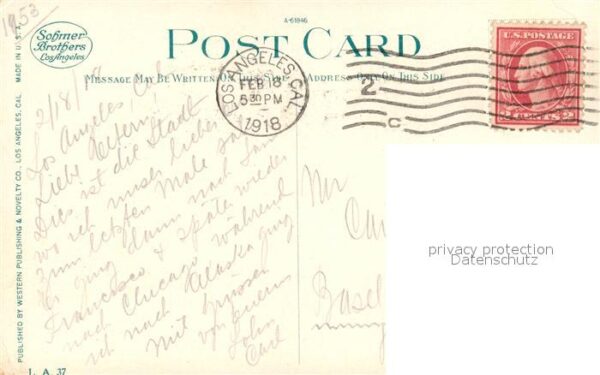 1953
A-61846
Sohmer
Brothers
Los Angeles
POST CARD
MESSAGE MAY BE WRITTEN ON THIS SIDE
ADDRESS ONLY ON THIS SIDE
LOS ANGELES, CAL.
FEB 18
530 PM
1918
2
C
U.S. POSTAGE
2 CENTS 2
MADE IN U.S.A.
PUBLISHED BY WESTERN PUBLISHING & NOVELTY CO., LOS ANGELES, CAL.
2/18/
Los Angeles Cal
Liebe Eltern.
Dies ist die Stadt
wo ich unser lieber
zum letzten Male sah
Er ging dann nach San
Francisco & später wieder
nach Chicago während
ich nach Alaska ging
Mit Grüssen
von Euerm
Sohn
Carl
Mr
Car
Basel
privacy protection
Datenschutz
L. A. 37